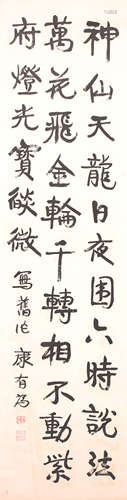 神仙天龍日夜围六時說法
萬花飛金輪千轉相不動紫
府燈光寶燄微
寫舊作 康有為